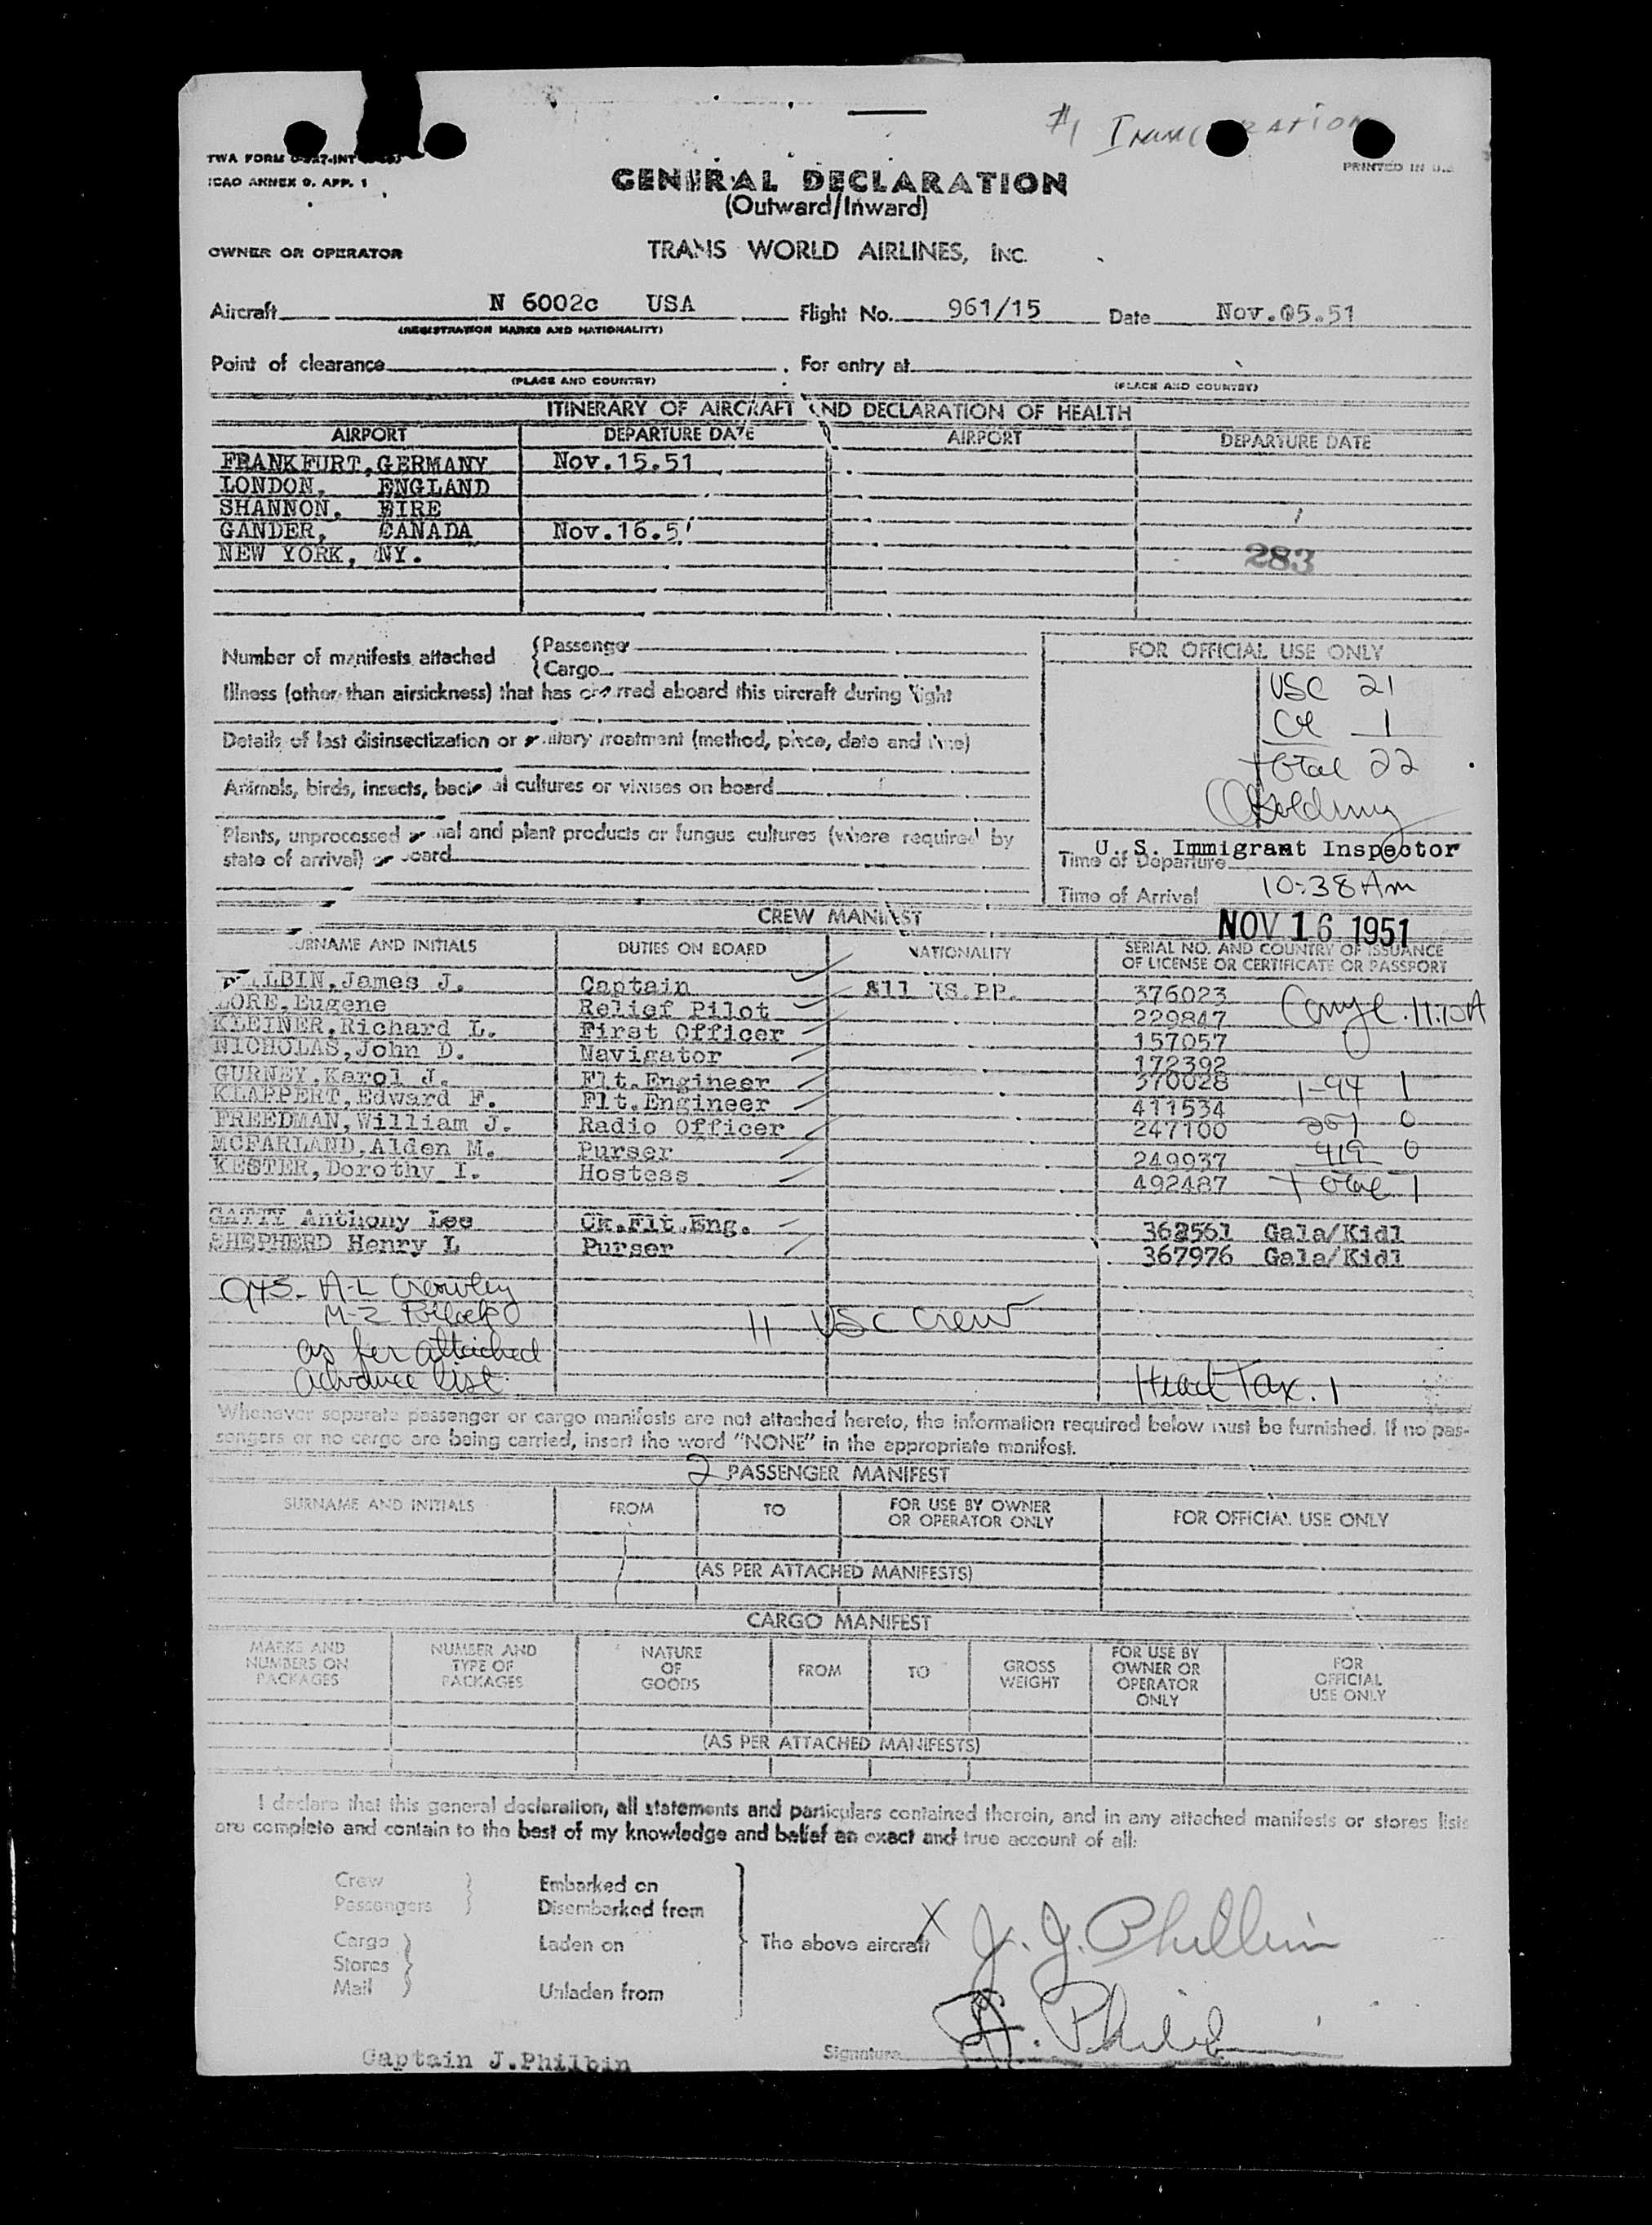 #1
TWA FORM
PRINTED IN U.S.
ICAO ANNEX 9. APP. 1
GENERAL DECLARATION
(Outward/Inward)
OWNER OR OPERATOR TRANS WORLD AIRLINES, INC.
Aircraft N 6002c USA Flight No. 961/15 Date Nov. 5.51
(REGISTRATION MARKS AND NATIONALITY)
Point of clearance For entry at
(PLACE AND COUNTRY) (PLACE AND COUNTRY)
ITINERARY OF AIRCRAFT AND DECLARATION OF HEALTH
AIRPORT DEPARTURE DATE AIRPORT DEPARTURE DATE
FRANKFURT, GERMANY Nov.15.51
LONDON, ENGLAND
SHANNON, EIRE
GANDER, CANADA Nov.16.5
NEW YORK, NY. 283
Number of manifests attached {Passenger
{Cargo
FOR OFFICIAL USE ONLY
Illness (other than airsickness) that has occurred aboard this aircraft during flight
USC 21
Details of last disinsectization or sanitary treatment (method, place, date and time)
1
Total 22
Animals, birds, insects, bacterial cultures or viruses on board
Plants, unprocessed animal and plant products or fungus cultures (where required by
state of arrival) on board
U. S. Immigrant Inspector
Time of Departure
Time of Arrival 10:38 Am
CREW MANIFEST NOV 16 1951
SURNAME AND INITIALS DUTIES ON BOARD NATIONALITY SERIAL NO. AND COUNTRY OF ISSUANCE
OF LICENSE OR CERTIFICATE OR PASSPORT
PHILBIN, James J. Captain all US.PP. 376023
LORE, Eugene Relief Pilot 229847
KLEINER, Richard L. First Officer 157057
NICHOLAS, John D. Navigator 172392
GURNEY, Karol J. Flt.Engineer 370028 1-94 1
KLAPPERT, Edward F. Flt.Engineer 411534
FREEDMAN, William J. Radio Officer 247100 257 0
MCFARLAND, Alden M. Purser 249937 419 0
KESTER, Dorothy I. Hostess 492487 Total 1
GATTY Anthony Lee Ck.Flt.Eng. 362561 Gala/Kidl
SHEPHERD Henry L Purser 367976 Gala/Kidl
A-L Crowley
M-Z Pollack 11 USC Crew
as per attached
advance list
Head Tax. 1
Whenever separate passenger or cargo manifests are not attached hereto, the information required below must be furnished. If no pas-
sengers or no cargo are being carried, insert the word "NONE" in the appropriate manifest.
2 PASSENGER MANIFEST
SURNAME AND INITIALS FROM TO FOR USE BY OWNER
OR OPERATOR ONLY FOR OFFICIAL USE ONLY
(AS PER ATTACHED MANIFESTS)
CARGO MANIFEST
MARKS AND
NUMBERS ON
PACKAGES
NUMBER AND
TYPE OF
PACKAGES
NATURE
OF
GOODS
FROM
TO
GROSS
WEIGHT
FOR USE BY
OWNER OR
OPERATOR
ONLY
FOR
OFFICIAL
USE ONLY
(AS PER ATTACHED MANIFESTS)
I declare that this general declaration, all statements and particulars contained therein, and in any attached manifests or stores lists
are complete and contain to the best of my knowledge and belief an exact and true account of all:
Crew } Embarked on
Passengers } Disembarked from
Cargo } Laden on The above aircraft X J. J. Philbin
Stores
Mail } Unladen from
J. Philbin
Captain J.Philbin Signature